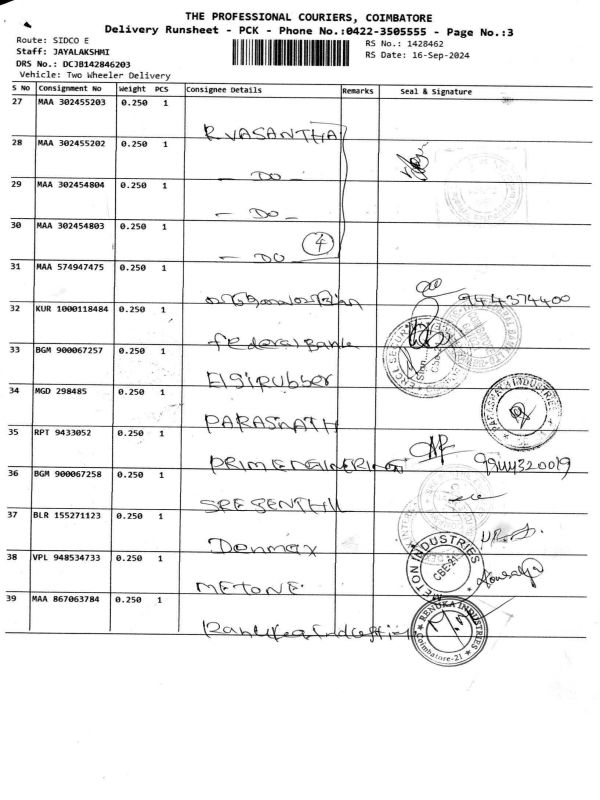 THE PROFESSIONAL COURIERS, COIMBATORE
Delivery Runsheet - PCK - Phone No.:0422-3505555 - Page No.:3
Route: SIDCO E
RS No.: 1428462
Staff: JAYALAKSHMI
RS Date: 16-Sep-2024
DRS No.: DCJB142846203
Vehicle: Two Wheeler Delivery
S No Consignment No Weight PCS Consignee Details Remarks Seal & Signature
27 MAA 302455203 0.250 1 R.VASANTHA
28 MAA 302455202 0.250 1 - DO -
29 MAA 302454804 0.250 1 - DO -
30 MAA 302454803 0.250 1 - DO - 4
31 MAA 574947475 0.250 1 9444374400
32 KUR 1000118484 0.250 1 federal Bank
33 BGM 900067257 0.250 1 Elgirubber
34 MGD 298485 0.250 1 PARASNATH
35 RPT 9433052 0.250 1 PRIMENGINERING
36 BGM 900067258 0.250 1 SREE SENTHIL
37 BLR 155271123 0.250 1 Denmax
38 VPL 948534733 0.250 1 METONE
METON INDUSTRIES
CBE-21
39 MAA 867063784 0.250 1
RENUKA INDUSTRIES
Coimbatore-21